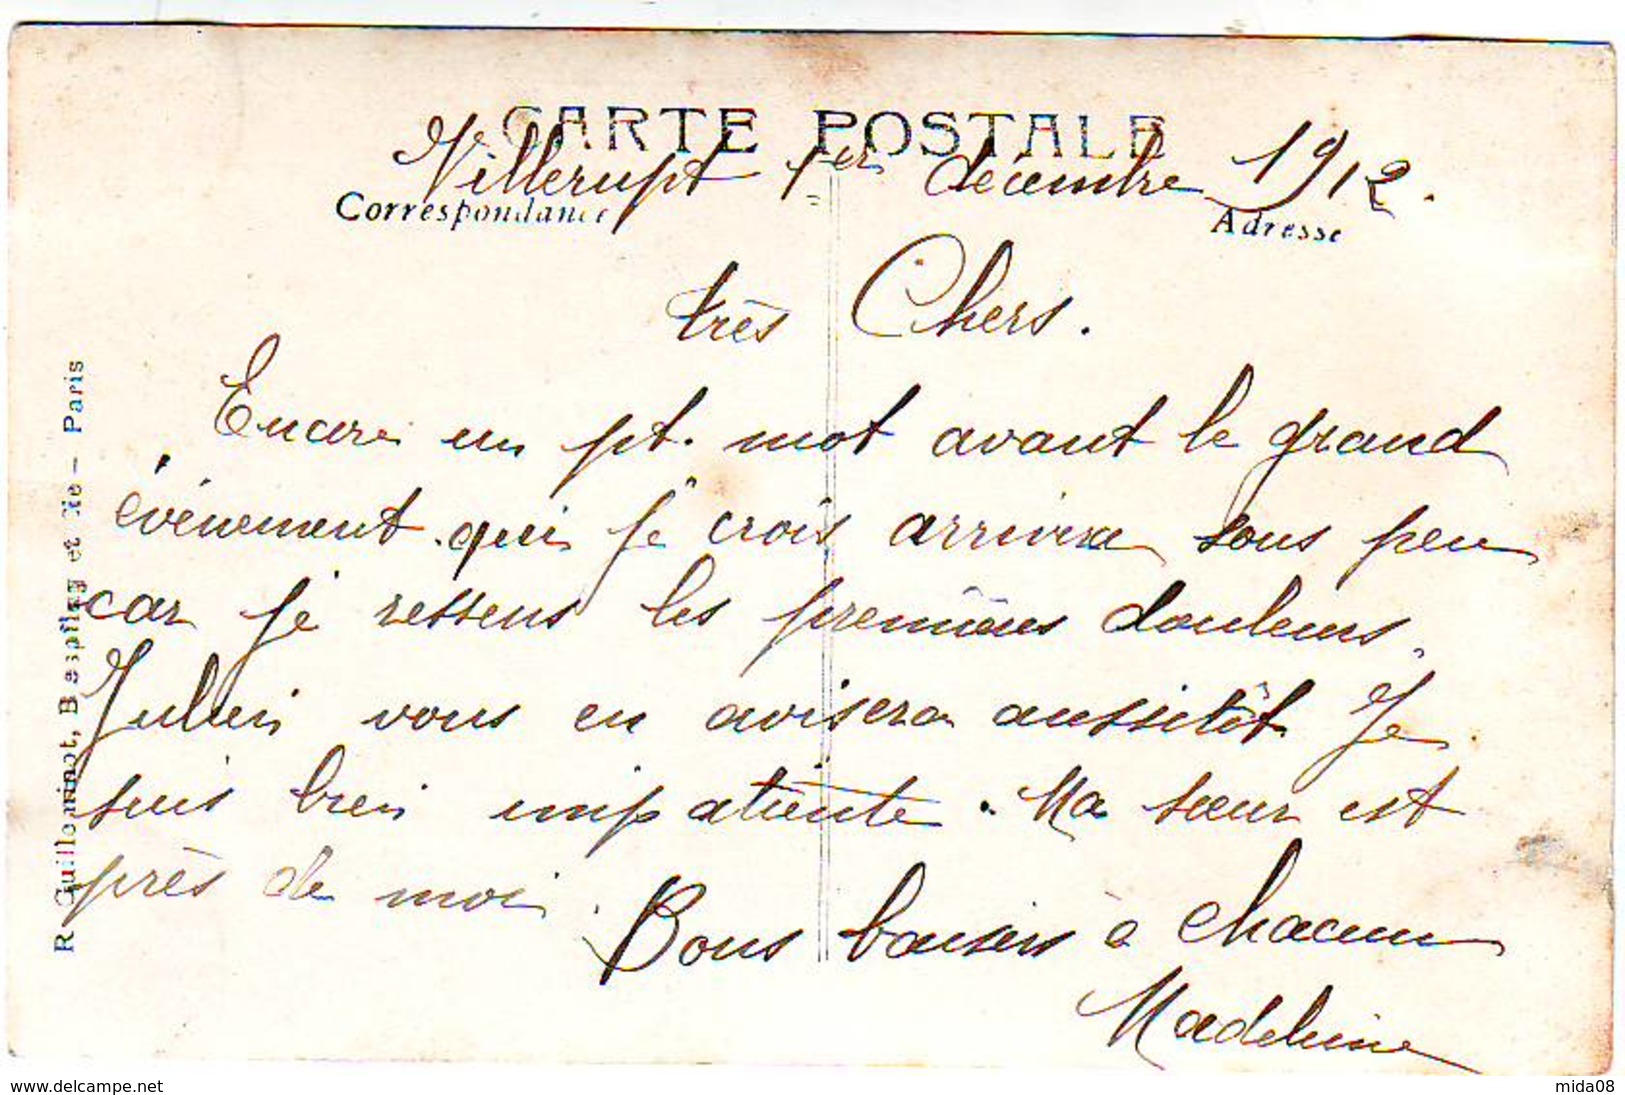 CARTE POSTALE
Villerupt 1er décembre 1912.
Correspondance
Adresse
très Chers.
Encore un pt. mot avant le grand
événement qui je crois arrivera sous peu
car je ressens les premières douleurs.
Julien vous en avisera aussitôt. Je
suis bien impatiente. Ma sœur est
près de moi.
Bons baisers à chacun
Madeleine
R. Guilleminot, Bœspflug et Cie - Paris
delcampe.net
mida08